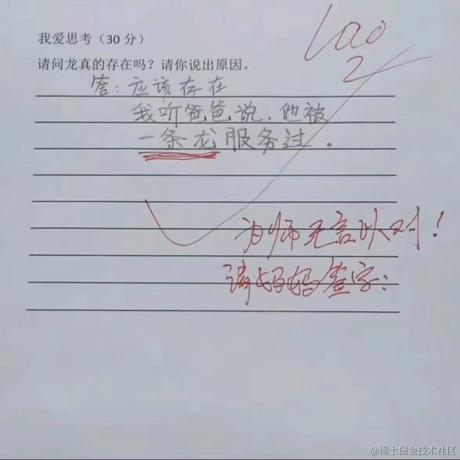 我爱思考（30 分）
请问龙真的存在吗？请你说出原因。
答：应该存在
我听爸爸说，他被
一条龙服务过。
为师无言以对！
请妈妈查字：
@稀土掘金技术社区